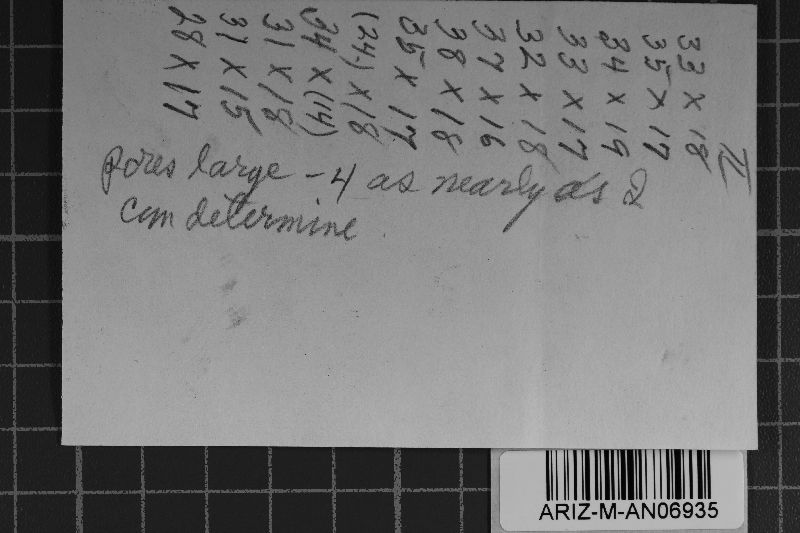 II
33 X 18
35 X 17
34 X 19
33 X 17
32 X 18
37 X 16
38 X 18
35 X 17
(24) X 18
34 X (14)
31 X 18
31 X 15
28 X 17
pores large - 4 as nearly as I
can determine
ARIZ-M-AN06935